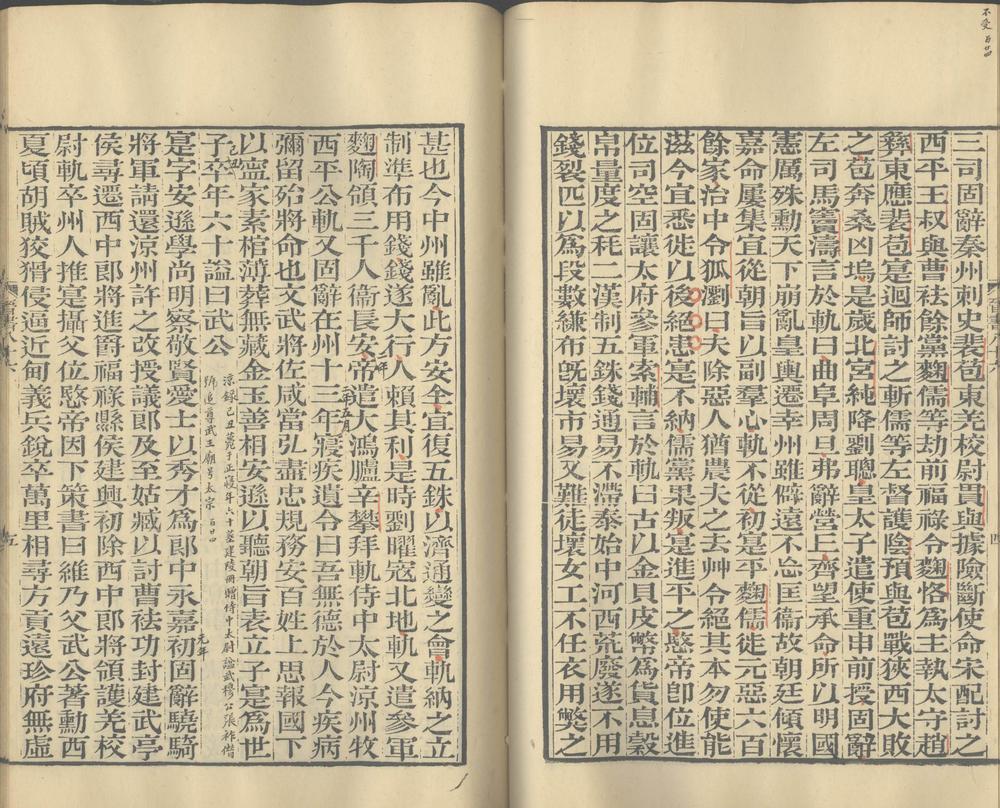 三司固辭秦州刺史裴苞東羌校尉貫與據險斷使命宋配討之
西平王叔與曹袪餘黨麴儒等劫前福祿令麴恪爲主執太守趙
彝東應裴苞寔迴師討之斬儒等左督護陰預與苞戰狹西大敗
之苞奔桑凶塢是歲北宮純降劉聰皇太子遣使重申前授固辭
左司馬竇濤言於軌曰曲阜周旦弗辭營丘齊望承命所以明國
憲厲殊勳天下崩亂皇輿遷幸州雖僻遠不忘匡衞故朝廷傾懷
嘉命屢集宜從朝旨以副羣心軌不從初寔平麴儒徙元惡六百
餘家治中令狐瀏曰夫除惡人猶農夫之去艸令絕其本勿使能
滋今宜悉徙以後絕患寔不納儒黨果叛寔進平之愍帝卽位進
位司空固讓太府參軍索輔言於軌曰古以金貝皮幣爲貨息穀
帛量度之秏二漢制五銖錢通易不滯泰始中河西荒廢遂不用
錢裂匹以爲段數縑布旣壞市易又難徒壞女工不任衣用弊之
甚也今中州雖亂此方安全宜復五銖以濟通變之會軌納之立
制準布用錢錢遂大行人賴其利是時劉曜寇北地軌又遣參軍
麴陶領三千人衞長安帝遣大鴻臚辛攀拜軌侍中太尉涼州牧
西平公軌又固辭在州十三年寢疾遺令曰吾無德於人今疾病
彌留殆將命也文武將佐咸當弘盡忠規務安百姓上思報國下
以寧家素棺薄葬無藏金玉善相安遜以聽朝旨表立子寔爲世
子卒年六十謚曰武公
涼錄己丑薨于正寢年六十葬建陵册贈侍中太尉謚武穆公張祚僭
號追尊武王廟号太宗
寔字安遜學尚明察敬賢愛士以秀才爲郎中永嘉初固辭驍騎
元年
將軍請還涼州許之改授議郎及至姑臧以討曹袪功封建武亭
侯尋遷西中郎將進爵福祿縣侯建興初除西中郎將領護羌校
尉軌卒州人推寔攝父位愍帝因下策書曰維乃父武公著勳西
夏頃胡賊狡猾侵逼近甸義兵銳卒萬里相尋方貢遠珍府無虛